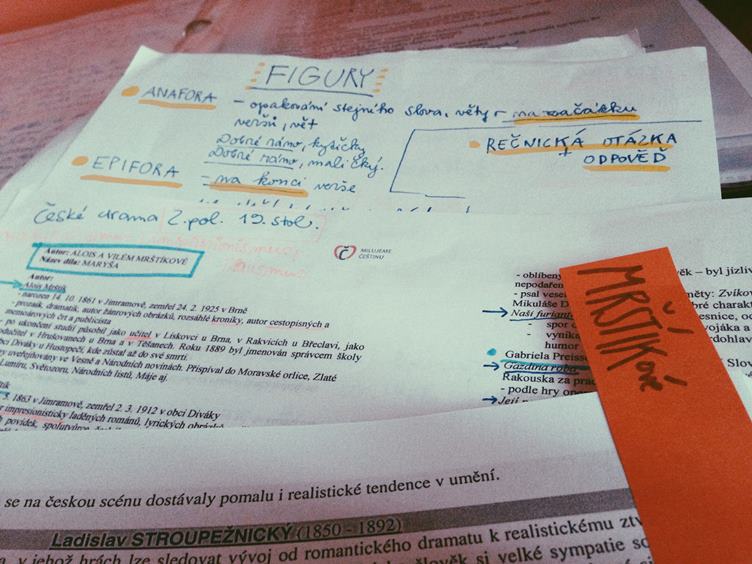 FIGURY
ANAFORA - opakování stejného slova, věty na začátku
veršů, vět
Dobré ráno, kytičky
Dobré ráno, maličký.
ŘEČNICKÁ OTÁZKA
+ ODPOVĚĎ
EPIFORA - na konci verše
České drama 2. pol. 19. stol.
MILUJEME
ČEŠTINU
Autor: ALOIS A VILÉM MRŠTÍKOVÉ
Název díla: MARYŠA
Autor:
Alois Mrštík
- narozen 14. 10. 1861 v Jimramově, zemřel 24. 2. 1925 v Brně
- prozaik, dramatik, autor žánrových obrázků, rozsáhlé kroniky, autor cestopisných a
memoárových črt a publicista
- po ukončení studií působil jako učitel v Lískovci u Brna, v Rakvicích u Břeclavi, jako
v Hruškách u Brna a v Těšanech. Roku 1889 byl jmenován správcem školy
Diváky u Hustopečí, kde zůstal až do své smrti.
uveřejňovány ve Vesně a Národních novinách. Přispíval do Moravské orlice, Zlaté
Lumíru, Světozoru, Národních listů, Máje aj.
1863 v Jimramově, zemřel 2. 3. 1912 v obci Diváky
impresionisticky laděných románů, lyrických obrázků
povídek, spolutvůrce
- oblíbený
nepodařen
- psal vesel
Mikuláše D
Naši furiant
- spor
- vynika
humor
Gabriela Preiss
Gazdina roba
Rakouska za
- podle hry
- Její
věk - byl jízliv
Zvíkov
dobré charakt
vojáka a
Slov
MRŠTÍKOVÉ
se na českou scénu dostávaly pomalu i realistické tendence v umění.
Ladislav STROUPEŽNICKÝ (1850 - 1892)
v jehož hrách lze sledovat vývoj od romantického dramatu k realistickému ztv
člověk si velké sympatie